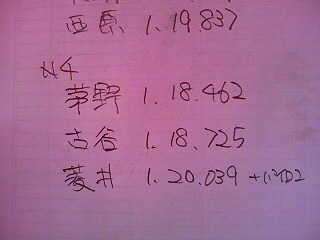 西原 1.19.837
N4
茅野 1.18.462
古谷 1.18.725
菱井 1.20.039